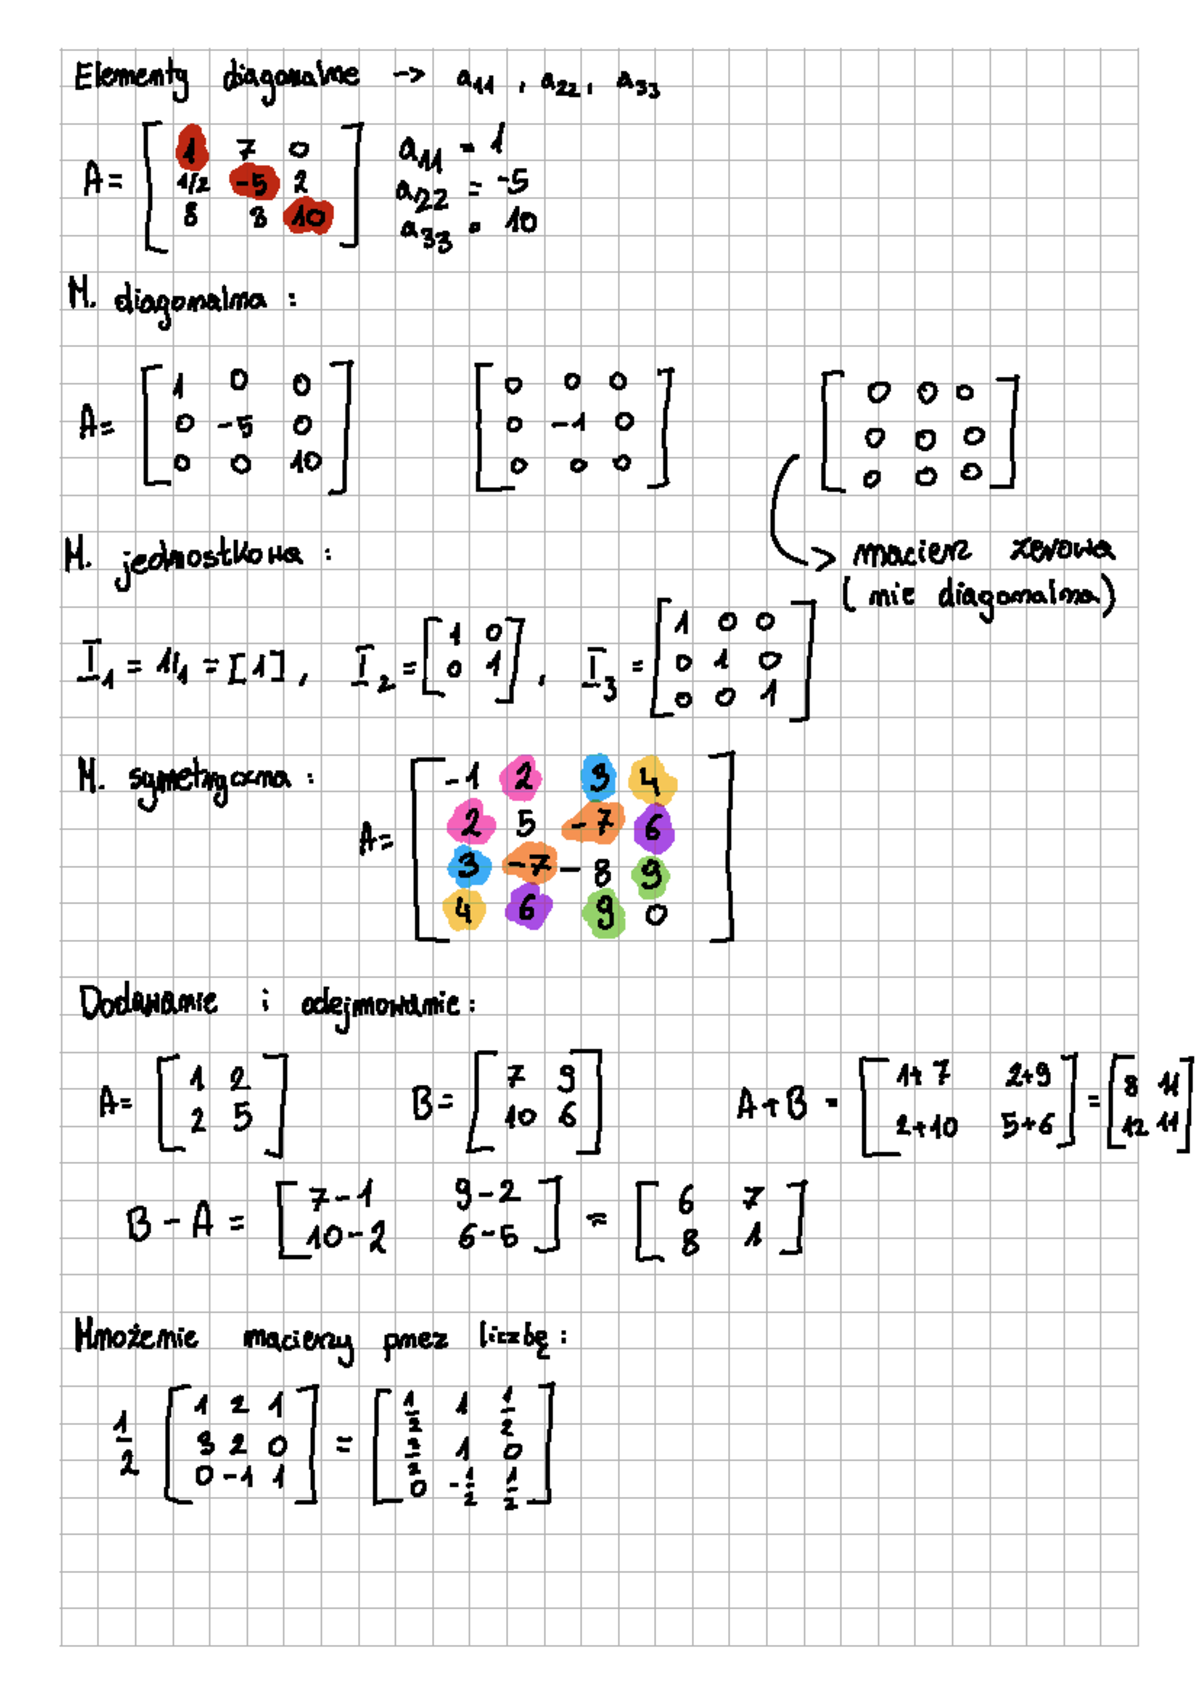 Elementy diagonalne -> a₁₁ , a₂₂, a₃₃
A = [ 1 7 0
1/2 -5 2
8 3 10 ]
a₁₁ = 1
a₂₂ = -5
a₃₃ = 10
M. diagonalna :
A = [ 1 0 0
0 -5 0
0 0 10 ]
[ 0 0 0
0 -1 0
0 0 0 ]
[ 0 0 0
0 0 0
0 0 0 ]
-> macierz zerowa
( nie diagonalna )
M. jednostkowa :
I₁ = 1I₁ = [1] , I₂ = [ 1 0
0 1 ] , I₃ = [ 1 0 0
0 1 0
0 0 1 ]
M. symetryczna :
A = [ -1 2 3 4
2 5 -7 6
3 -7 -8 9
4 6 9 0 ]
Dodawanie i odejmowanie :
A = [ 1 2
2 5 ]
B = [ 7 9
10 6 ]
A + B = [ 1+7 2+9
2+10 5+6 ] = [ 8 11
12 11 ]
B - A = [ 7-1 9-2
10-2 6-5 ] = [ 6 7
8 1 ]
Mnożenie macierzy przez liczbę :
1/2 [ 1 2 1
3 2 0
0 -1 1 ] = [ 1/2 1 1/2
1 0
0 -1/2 1/2 ]